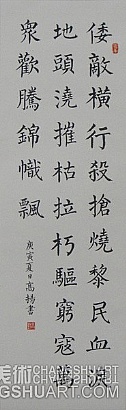 倭敵橫行殺搶燒黎民血淚
地頭澆摧枯拉朽驅窮寇萬
眾歡騰錦幟飄
庚寅夏日高揚書